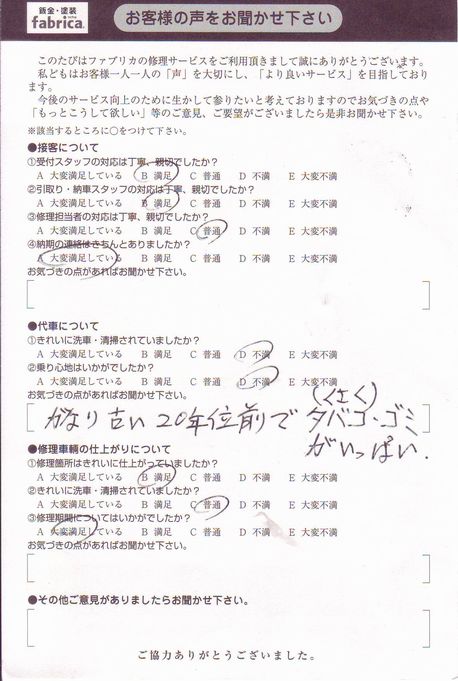 鈑金・塗装
fabrica.
お客様の声をお聞かせ下さい
このたびはファブリカの修理サービスをご利用頂きまして誠にありがとうございます。
私どもはお客様一人一人の「声」を大切にし、「より良いサービス」を目指しており
ます。
今後のサービス向上のために生かして参りたいと考えておりますのでお気づきの点や
「もっとこうして欲しい」等のご意見、ご要望がございましたら是非お聞かせ下さい。
※該当するところに○をつけて下さい。
●接客について
①受付スタッフの対応は丁寧、親切でしたか?
A 大変満足している B 満足 C 普通 D 不満 E 大変不満
②引取り・納車スタッフの対応は丁寧、親切でしたか?
A 大変満足している B 満足 C 普通 D 不満 E 大変不満
③修理担当者の対応は丁寧、親切でしたか?
A 大変満足している B 満足 C 普通 D 不満 E 大変不満
④納期の連絡はきちんとありましたか?
A 大変満足している B 満足 C 普通 D 不満 E 大変不満
お気づきの点があればお聞かせ下さい。
●代車について
①きれいに洗車・清掃されていましたか?
A 大変満足している B 満足 C 普通 D 不満 E 大変不満
②乗り心地はいかがでしたか?
A 大変満足している B 満足 C 普通 D 不満 E 大変不満
お気づきの点があればお聞かせ下さい。
(くさく)
かなり古い20年位前で タバコ・ゴミ
がいっぱい.
●修理車輌の仕上がりについて
①修理箇所はきれいに仕上がっていましたか?
A 大変満足している B 満足 C 普通 D 不満 E 大変不満
②きれいに洗車・清掃されていましたか?
A 大変満足している B 満足 C 普通 D 不満 E 大変不満
③修理期間についてはいかがでしたか?
A 大変満足している B 満足 C 普通 D 不満 E 大変不満
お気づきの点があればお聞かせ下さい。
●その他ご意見がありましたらお聞かせ下さい。
ご協力ありがとうございました。